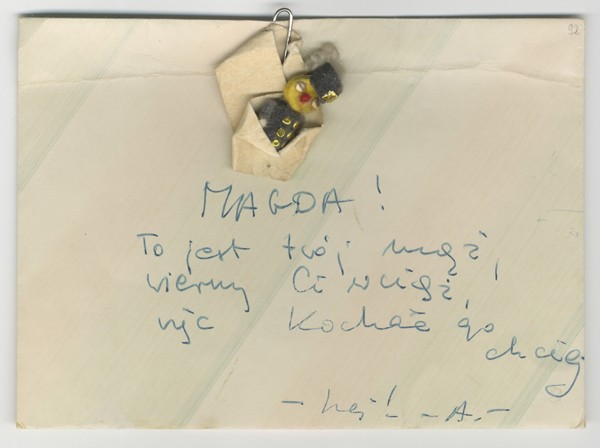 MAGDA!
To jest twój mąż,
wierny Ci wciąż,
więc Kochać go
chciej
- hej! - A. -